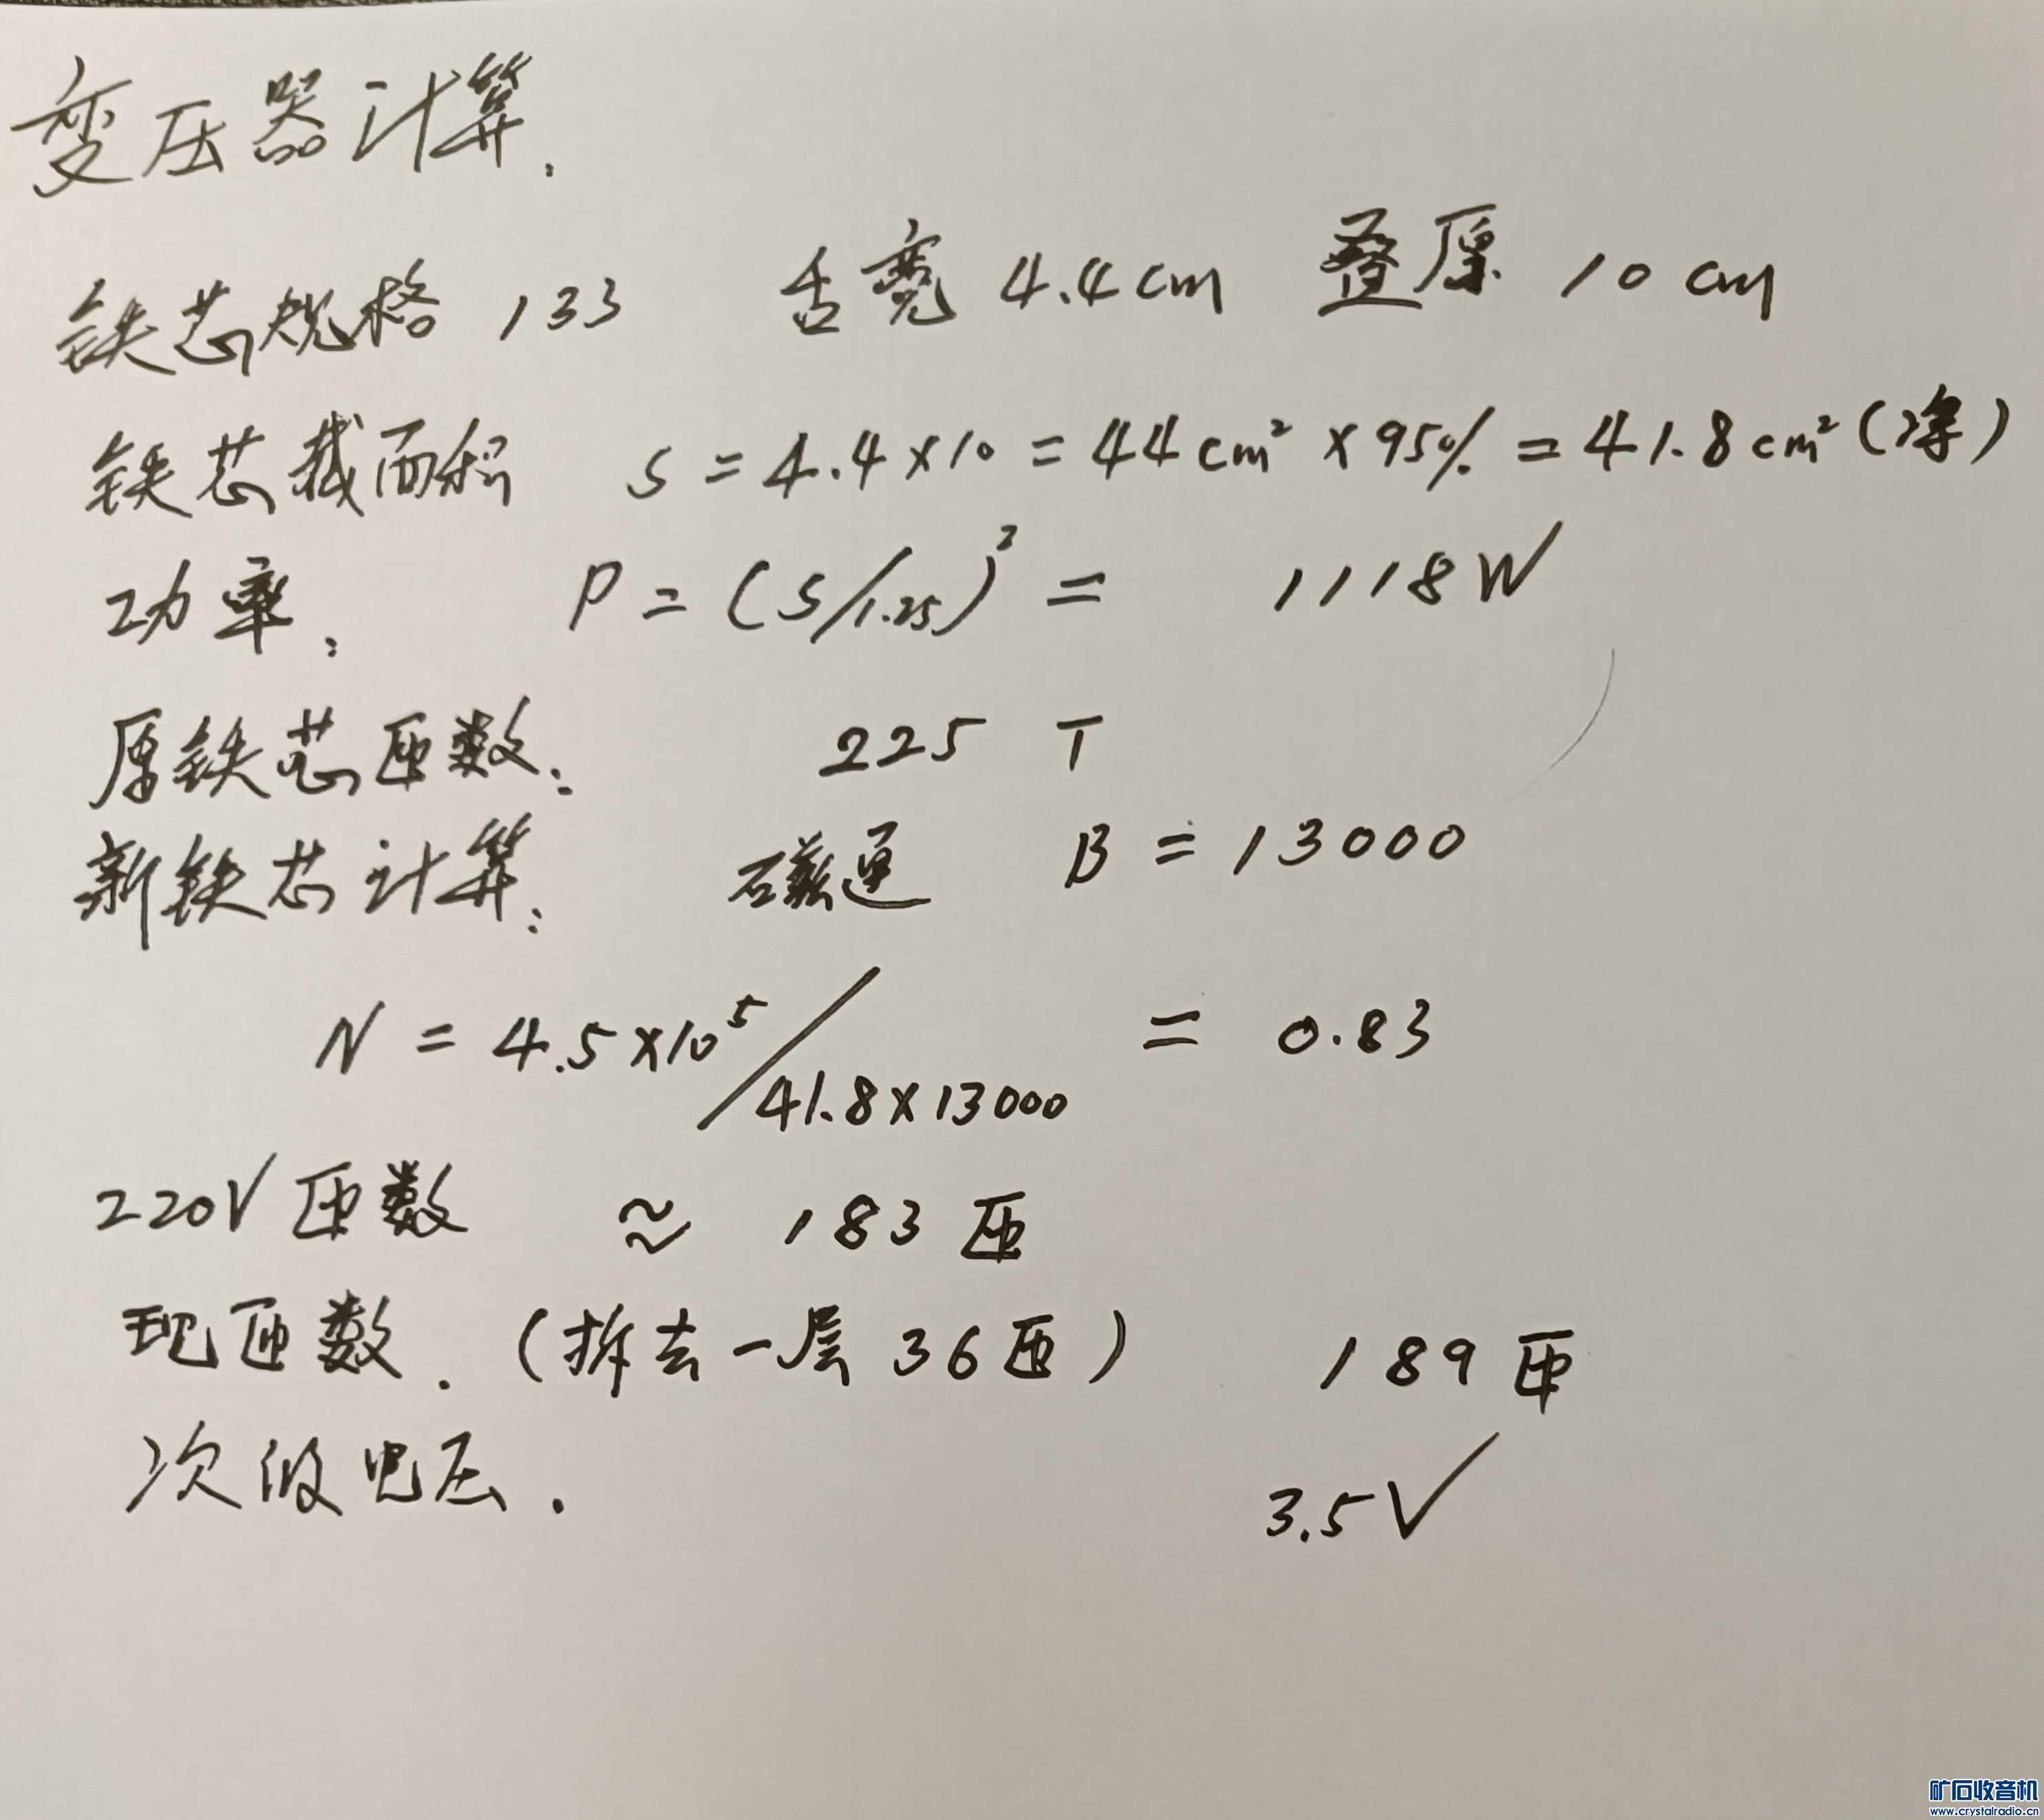 变压器计算.
铁芯规格 133 舌宽 4.4cm 叠厚 10cm
铁芯截面积 S = 4.4×10 = 44cm² ×95% = 41.8cm²(净)
功率: P = (S/1.25)² = 1118W
原铁芯匝数: 225 T
新铁芯计算: 磁通 B = 13000
N = 4.5×10⁵/41.8×13000 = 0.83
220V 匝数 ≈ 183匝
现匝数. (拆去一层36匝) 189匝
次级电压. 3.5V
矿石收音机
www.crystalradio.cn